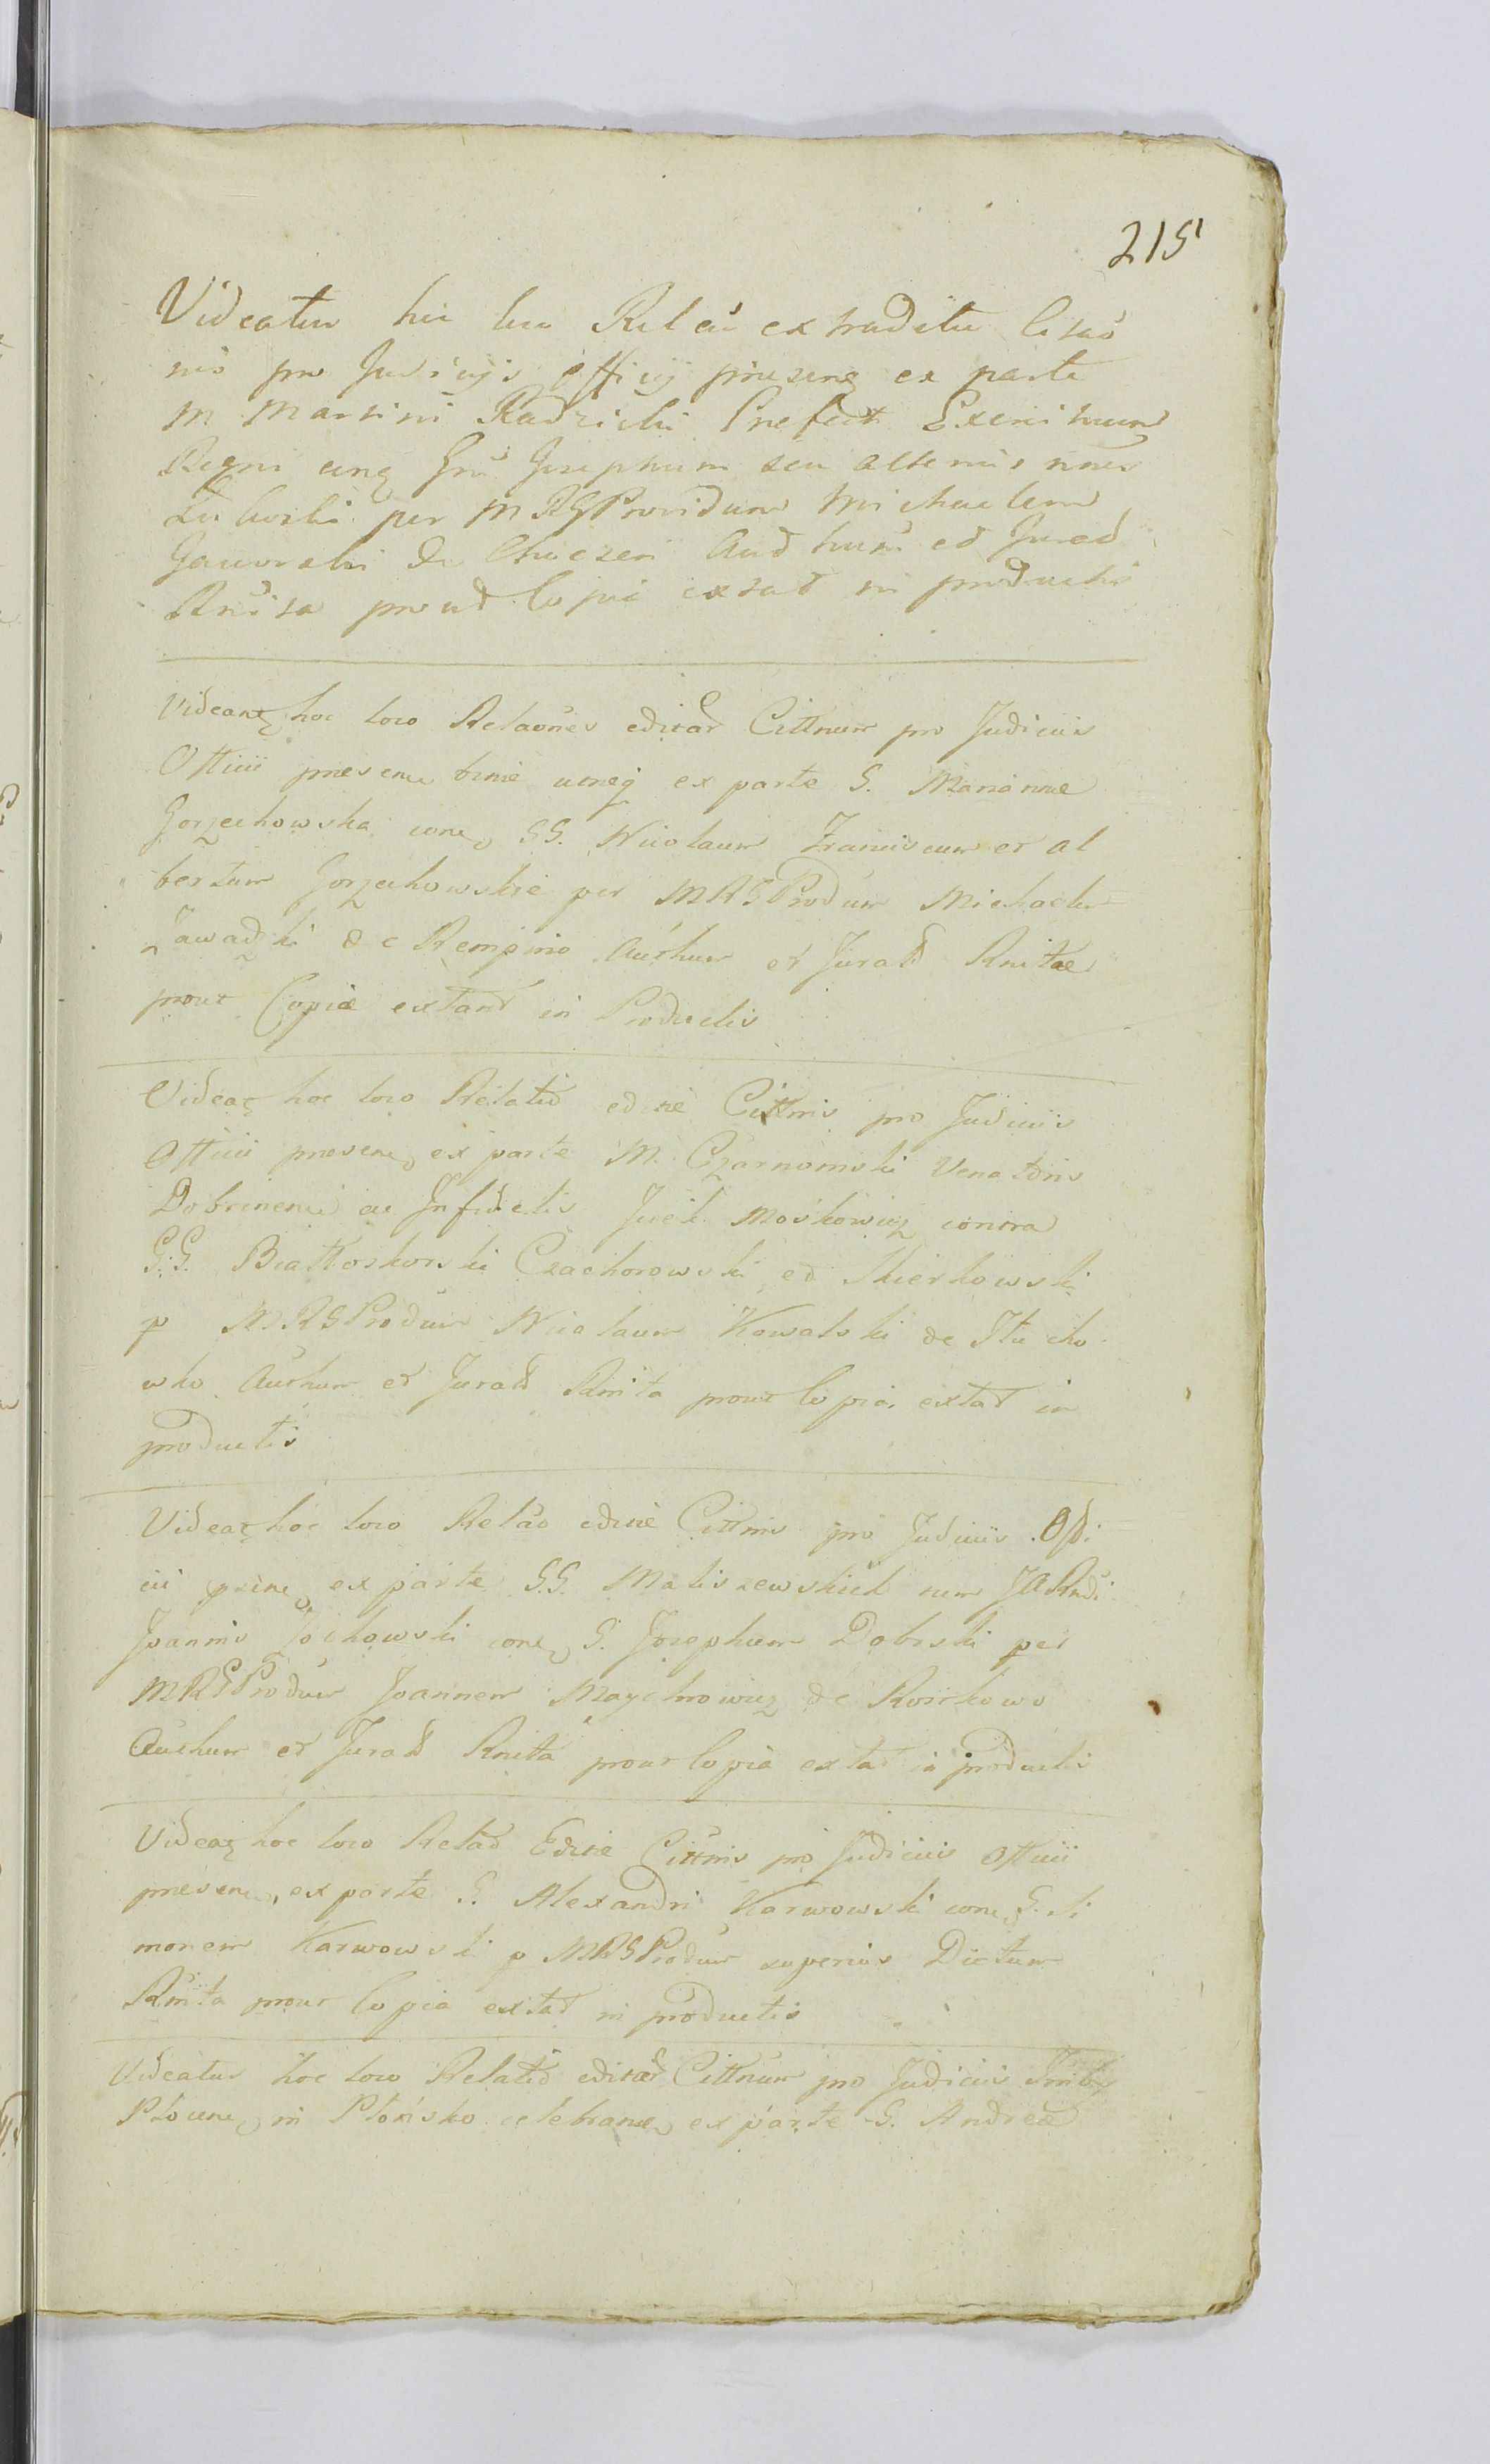 215
Videatur hic loco Relaõ extraditae Citaõ
nis pro Judicijs Officij praesenẽ ex parte
M Martini Radzicki Praefecti Exercituum
Regni cunẽ Gnũ Josephum seu alterius nĩnis
per MRGProvidum Michaelem
Gaworski de Auth hunc et Jurad
Rnĩsa proud Copia exsad in productis
Videantz hoc loco Relaões editar Cittnum pro Judiciis
Officii praesenẽ binae ex parte G. Marianne
Gorzechowska conẽ GG. Nicolaum Franciscum et Al
bertum Gorzechowskie per MRGProdum Michaelem
Zawadzki de Rempino Authum et Jurad Rnitae
prout Copiae extand in Productis
Videaz hoc loco Relatio editae Cittnis pro Judiciis
Officii praesenẽ ex parte M. Czarnomski Venatoris
Dobrinensi ac Infidelis Jcek Moskowicz contra
G.G. Białłoskorski Czachorowski ed Skierkowski
p MRGProdum Nicolaum Kowalski de Stucho
wko Authum et Jurad Rnita prout Copia extad in
productis
Videaz hoc loco Relaõ editae Cittnis pro Judiciis Offi
cii praenẽ ex parte GG. Maliszewskich nun JARndi
Joannis Jochowski conẽ G. Josephum Dobrski per
MRGProdum Joannem Maychrowicz de Rosickowo
Authum et Jurad Rnita prout Copia extad in productis
Videaz hoc loco Relaõ Editae Cittnis pro Judiciis Officii
praesenẽ, ex parte G. Alexandri Karwowski conẽ G. Si
monem Karwowski p MRGProdum superius Dictum
Rnita prout Copia extad in productis
Videatur hoc loco Relatio editar Cittnum pro Judiciis
Plocenẽ in Płońsko celebranẽ ex parte G. Andreae